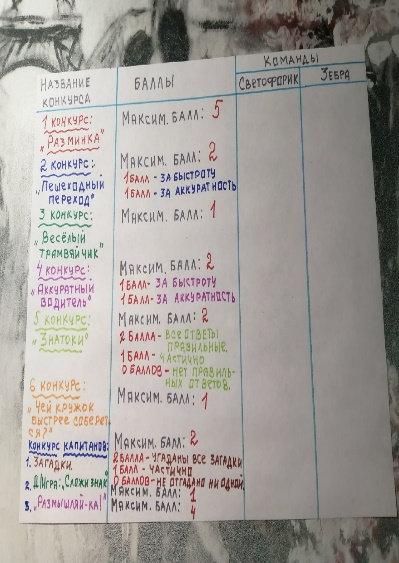 НАЗВАНИЕ КОНКУРСА
БАЛЛЫ
КОМАНДЫ
СВЕТОФОРИК
ЗЕБРА
1 КОНКУРС:
„РАЗМИНКА"
МАКСИМ. БАЛЛ: 5
2 КОНКУРС:
„ПЕШЕХОДНЫЙ
ПЕРЕХОД"
МАКСИМ. БАЛЛ: 2
1 БАЛЛ - ЗА БЫСТРОТУ
1 БАЛЛ - ЗА АККУРАТНОСТЬ
3 КОНКУРС:
„ВЕСЁЛЫЙ
ТРАМВАЙЧИК"
МАКСИМ. БАЛЛ: 1
4 КОНКУРС:
„АККУРАТНЫЙ
ВОДИТЕЛЬ"
МАКСИМ. БАЛЛ: 2
1 БАЛЛ - ЗА БЫСТРОТУ
1 БАЛЛ - ЗА АККУРАТНОСТЬ
5 КОНКУРС:
„ЗНАТОКИ"
МАКСИМ. БАЛЛ: 2
2 БАЛЛА - ВСЕ ОТВЕТЫ
ПРАВИЛЬНЫЕ.
1 БАЛЛ - ЧАСТИЧНО
0 БАЛЛОВ - НЕТ ПРАВИЛЬ-
НЫХ ОТВЕТОВ.
6 КОНКУРС:
„ЧЕЙ КРУЖОК
БЫСТРЕЕ СОБЕРЕТ-
СЯ?"
МАКСИМ. БАЛЛ: 1
КОНКУРС КАПИТАНОВ:
МАКСИМ. БАЛЛ: 2
1. ЗАГАДКИ.
2 БАЛЛА - УГАДАНЫ ВСЕ ЗАГАДКИ
1 БАЛЛ - ЧАСТИЧНО
0 БАЛЛОВ - НЕ ОТГАДАНО НИ ОДНОЙ.
2. Д/ИГРА: „СЛОЖИ ЗНАК"
МАКСИМ. БАЛЛ: 1
3. „РАЗМЫШЛЯЙ-КА!"
МАКСИМ. БАЛЛ: 4